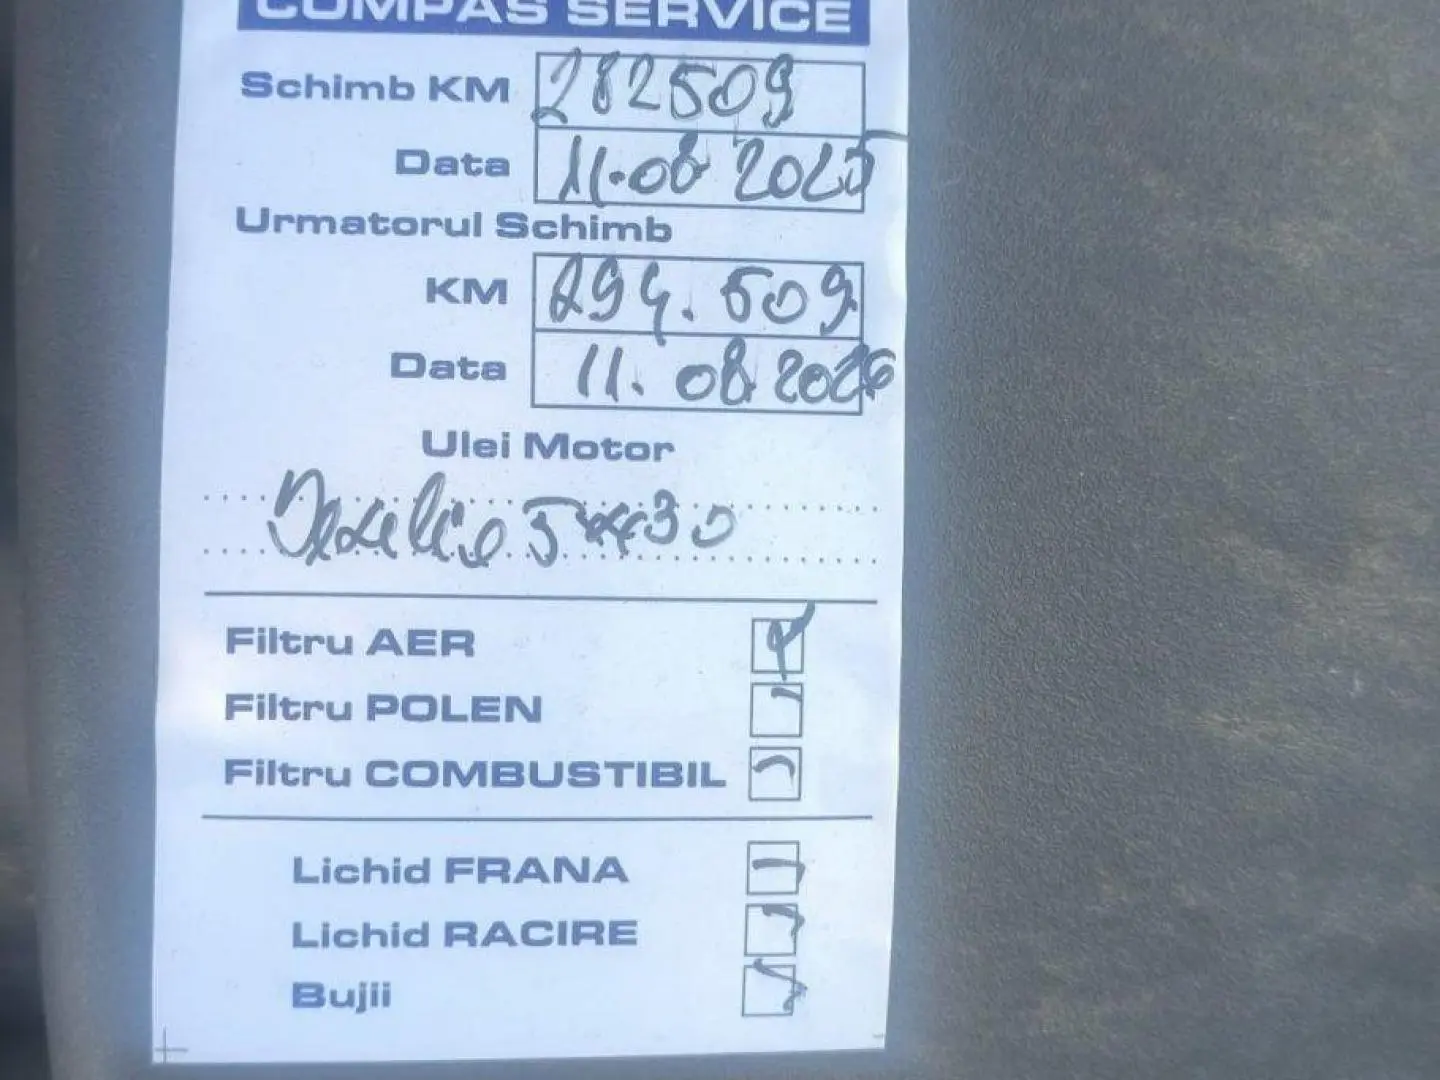 COMPAS SERVICE
Schimb KM 282509
Data 11.08 2025
Urmatorul Schimb
KM 294.509
Data 11.08.2026
Ulei Motor
5w30
Filtru AER
Filtru POLEN
Filtru COMBUSTIBIL
Lichid FRANA
Lichid RACIRE
Bujii